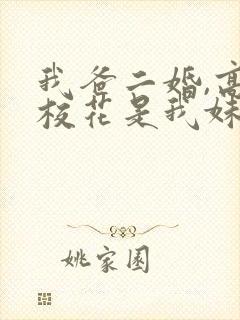 我爸二婚,高
校花是我妹
姚家園